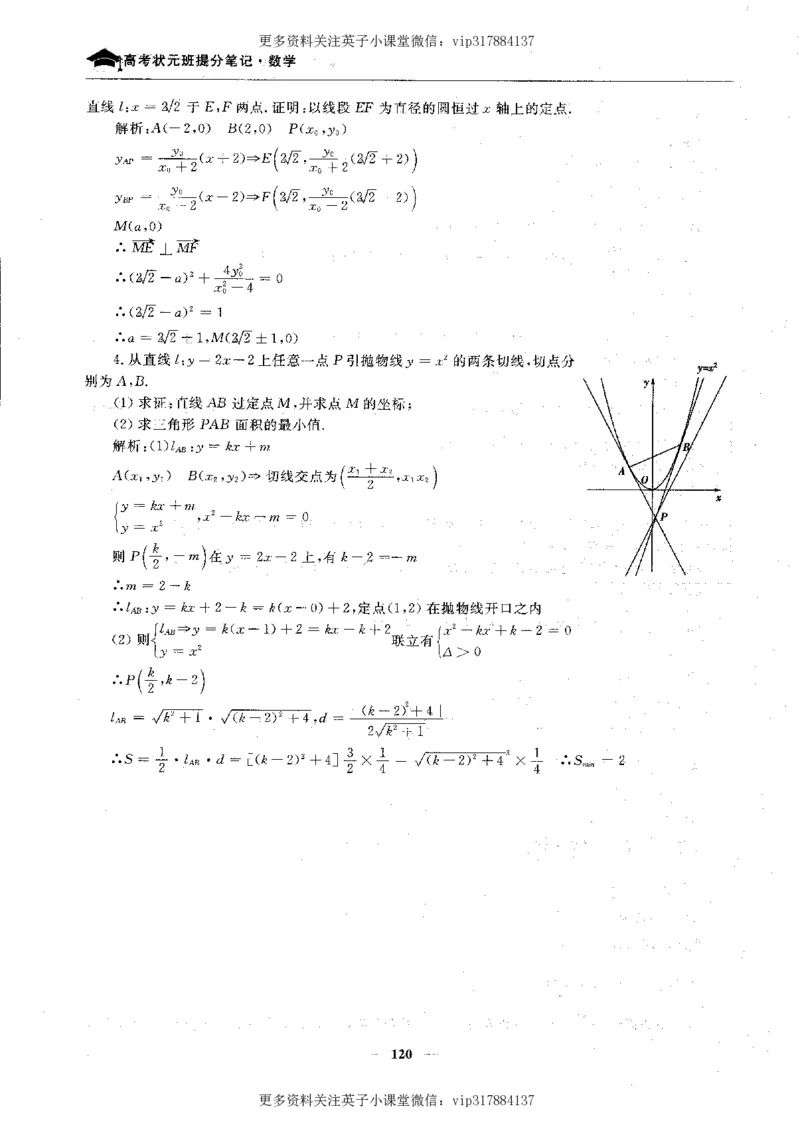 更多资料关注英子小课堂微信：vip317884137
高考状元班提分笔记·数学
直线 l:x = 2√2 于 E,F 两点.证明:以线段 EF 为直径的圆恒过 x 轴上的定点.
解析:A(-2,0) B(2,0) P(x₀,y₀)
y_AP = y₀/(x₀+2) (x+2)⇒E(2√2, y₀/(x₀+2) (2√2+2))
y_BP = y₀/(x₀-2) (x-2)⇒F(2√2, y₀/(x₀-2) (2√2-2))
M(a,0)
∴ ME ⊥ MF
∴(2√2-a)²+ 4y₀²/(x₀²-4) = 0
∴(2√2-a)² = 1
∴a = 2√2±1,M(2√2±1,0)
4.从直线 l:y=2x-2上任意一点 P 引抛物线 y = x² 的两条切线,切点分
别为 A,B.
(1) 求证:直线 AB 过定点 M,并求点 M 的坐标;
(2) 求三角形 PAB 面积的最小值.
解析:(1)l_AB:y = kx+m
A(x₁,y₁) B(x₂,y₂)⇒ 切线交点为((x₁+x₂)/2,x₁x₂)
{y = kx+m
y = x² ,x²-kx-m = 0
则 P(k/2,-m)在 y = 2x-2 上,有 k-2 =-m
∴m = 2-k
∴l_AB:y = kx+2-k = k(x-0)+2,定点(1,2) 在抛物线开口之内
(2) 则{l_AB⇒y = k(x-1)+2 = kx-k+2
y = x² 联立有{x²-kx+k-2 = 0
Δ>0
∴P(k/2,k-2)
l_AB = √(k²+1)·√((k-2)²+4),d = |(k-2)²+4|/(2√(k²+1))
∴S = 1/2·l_AB·d = [(k-2)²+4]^(3/2)×1/4 = √((k-2)²+4)³×1/4 ∴S_min = 2
y=x²
y
A
B
O
x
P
120
更多资料关注英子小课堂微信：vip317884137